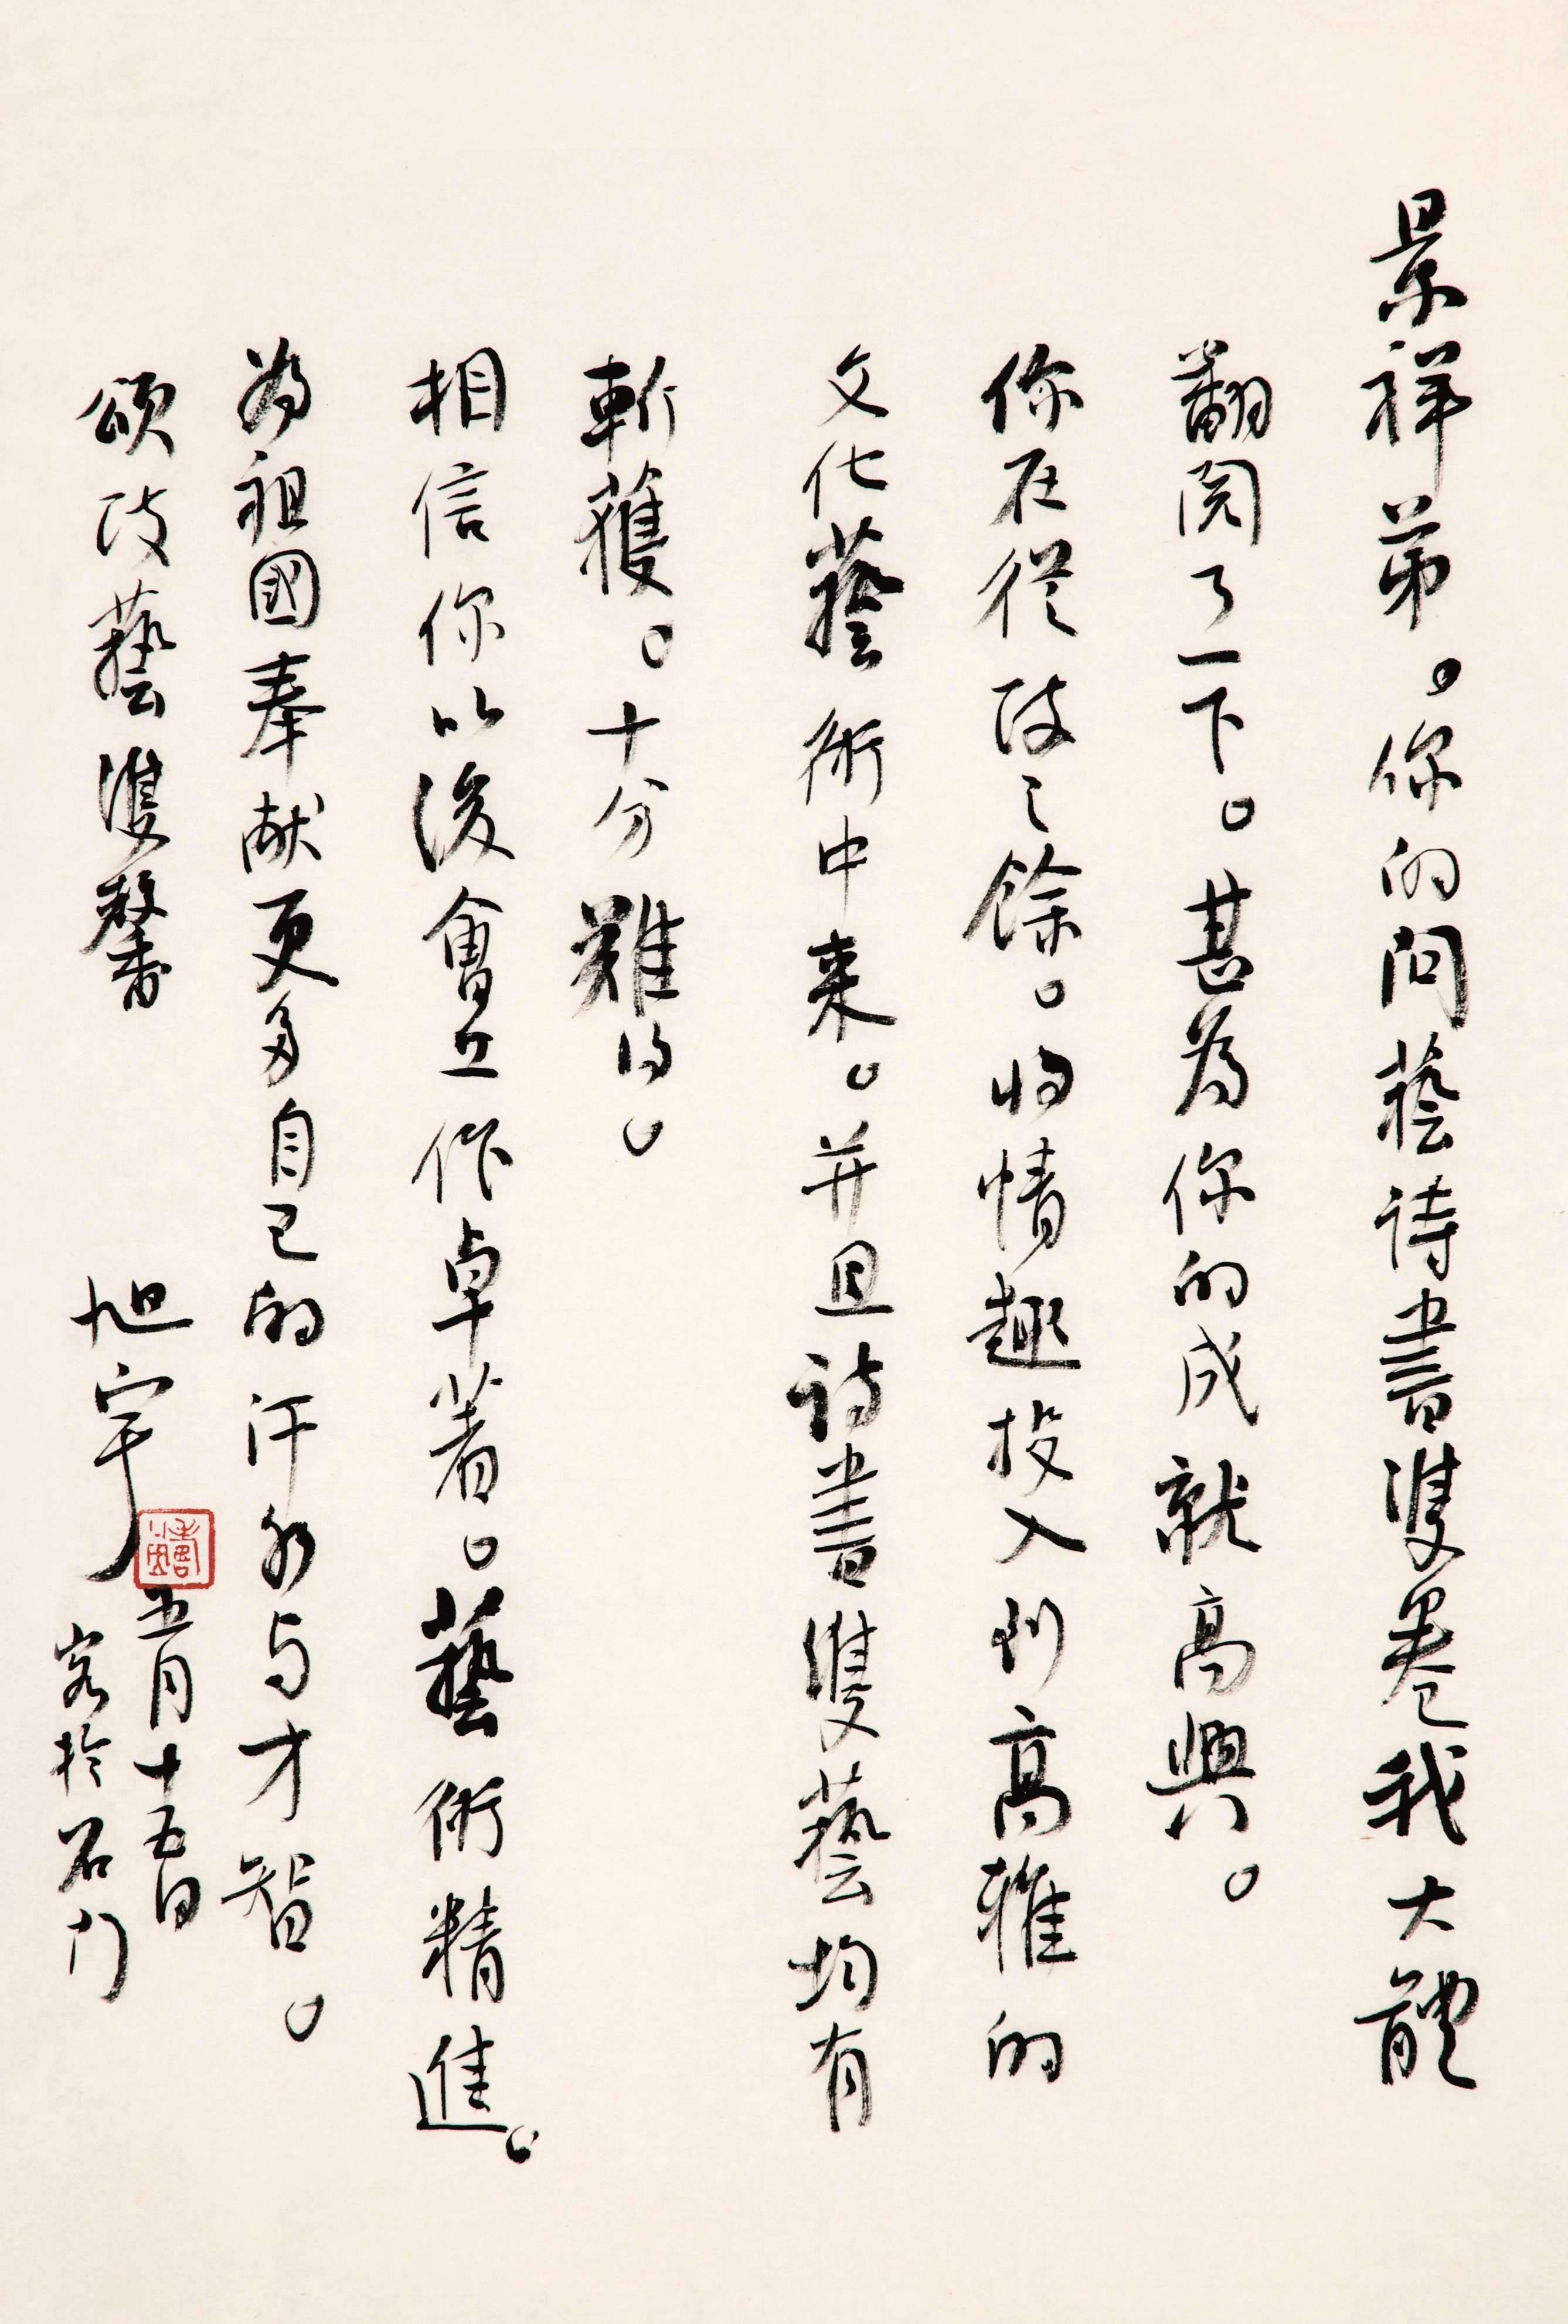 景祥弟。你的問藝詩書雙卷我大體
翻閱了一下。甚為你的成就高興。
你在從政之餘。將情趣投入到高雅的
文化藝術中来。并且詩書雙藝均有
斬獲。十分難得。
相信你以後會工作卓著。藝術精進。
為祖國奉献更多自己的汗水与才智。
頌政藝雙馨
旭宇
五月十五日
客於石門